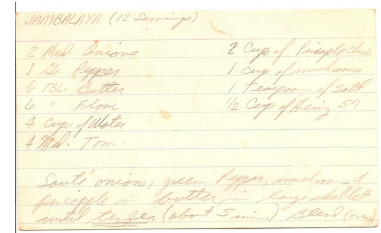 JAMBALAYA (12 Servings)
2 Med. Onions
1 Gr. Pepper
6 TBL. Butter
6 " Flour
4 Cups of Water
4 Med. Tom.
2 Cup of Pineapple Chunk
1 Cup of mushrooms
1 Teaspoon of Salt
1/2 Cup of Heinz 57
Sauté onions, green Pepper, mushrooms &
pineapple in butter in large skillet
until tender (about 5 min) Blend (over)